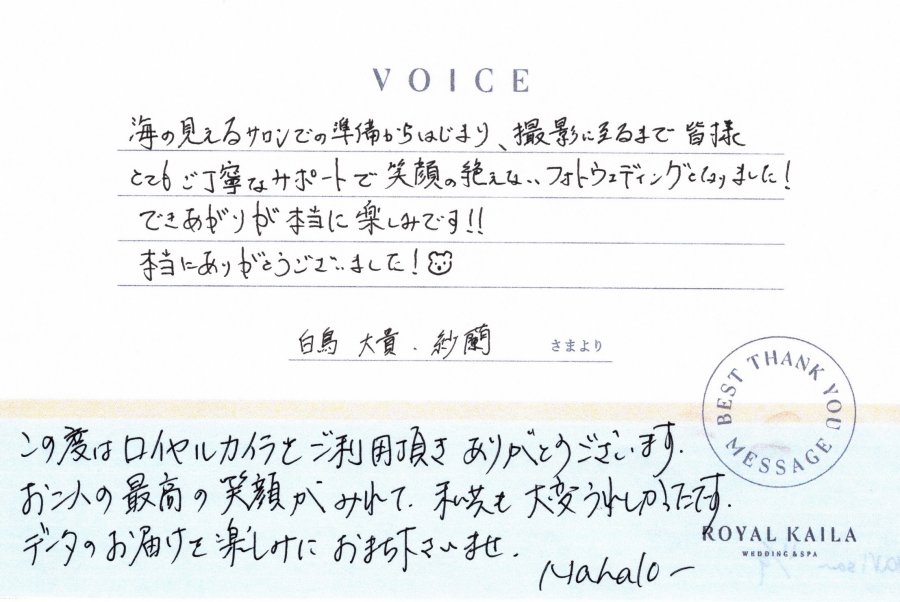 VOICE
海の見えるサロンでの準備からはじまり、撮影に至るまで皆様
とてもご丁寧なサポートで笑顔の絶えないフォトウェディングとなりました!
できあがりが本当に楽しみです!!
本当にありがとうございました!
白鳥 大貴・紗蘭 さまより
BEST THANK YOU MESSAGE
この度はロイヤルカイラをご利用頂きありがとうございます.
お二人の最高の笑顔がみれて、私共も大変うれしかったです.
データのお届けを楽しみにおまち下さいませ.
Mahalo〜
ROYAL KAILA
WEDDING & SPA